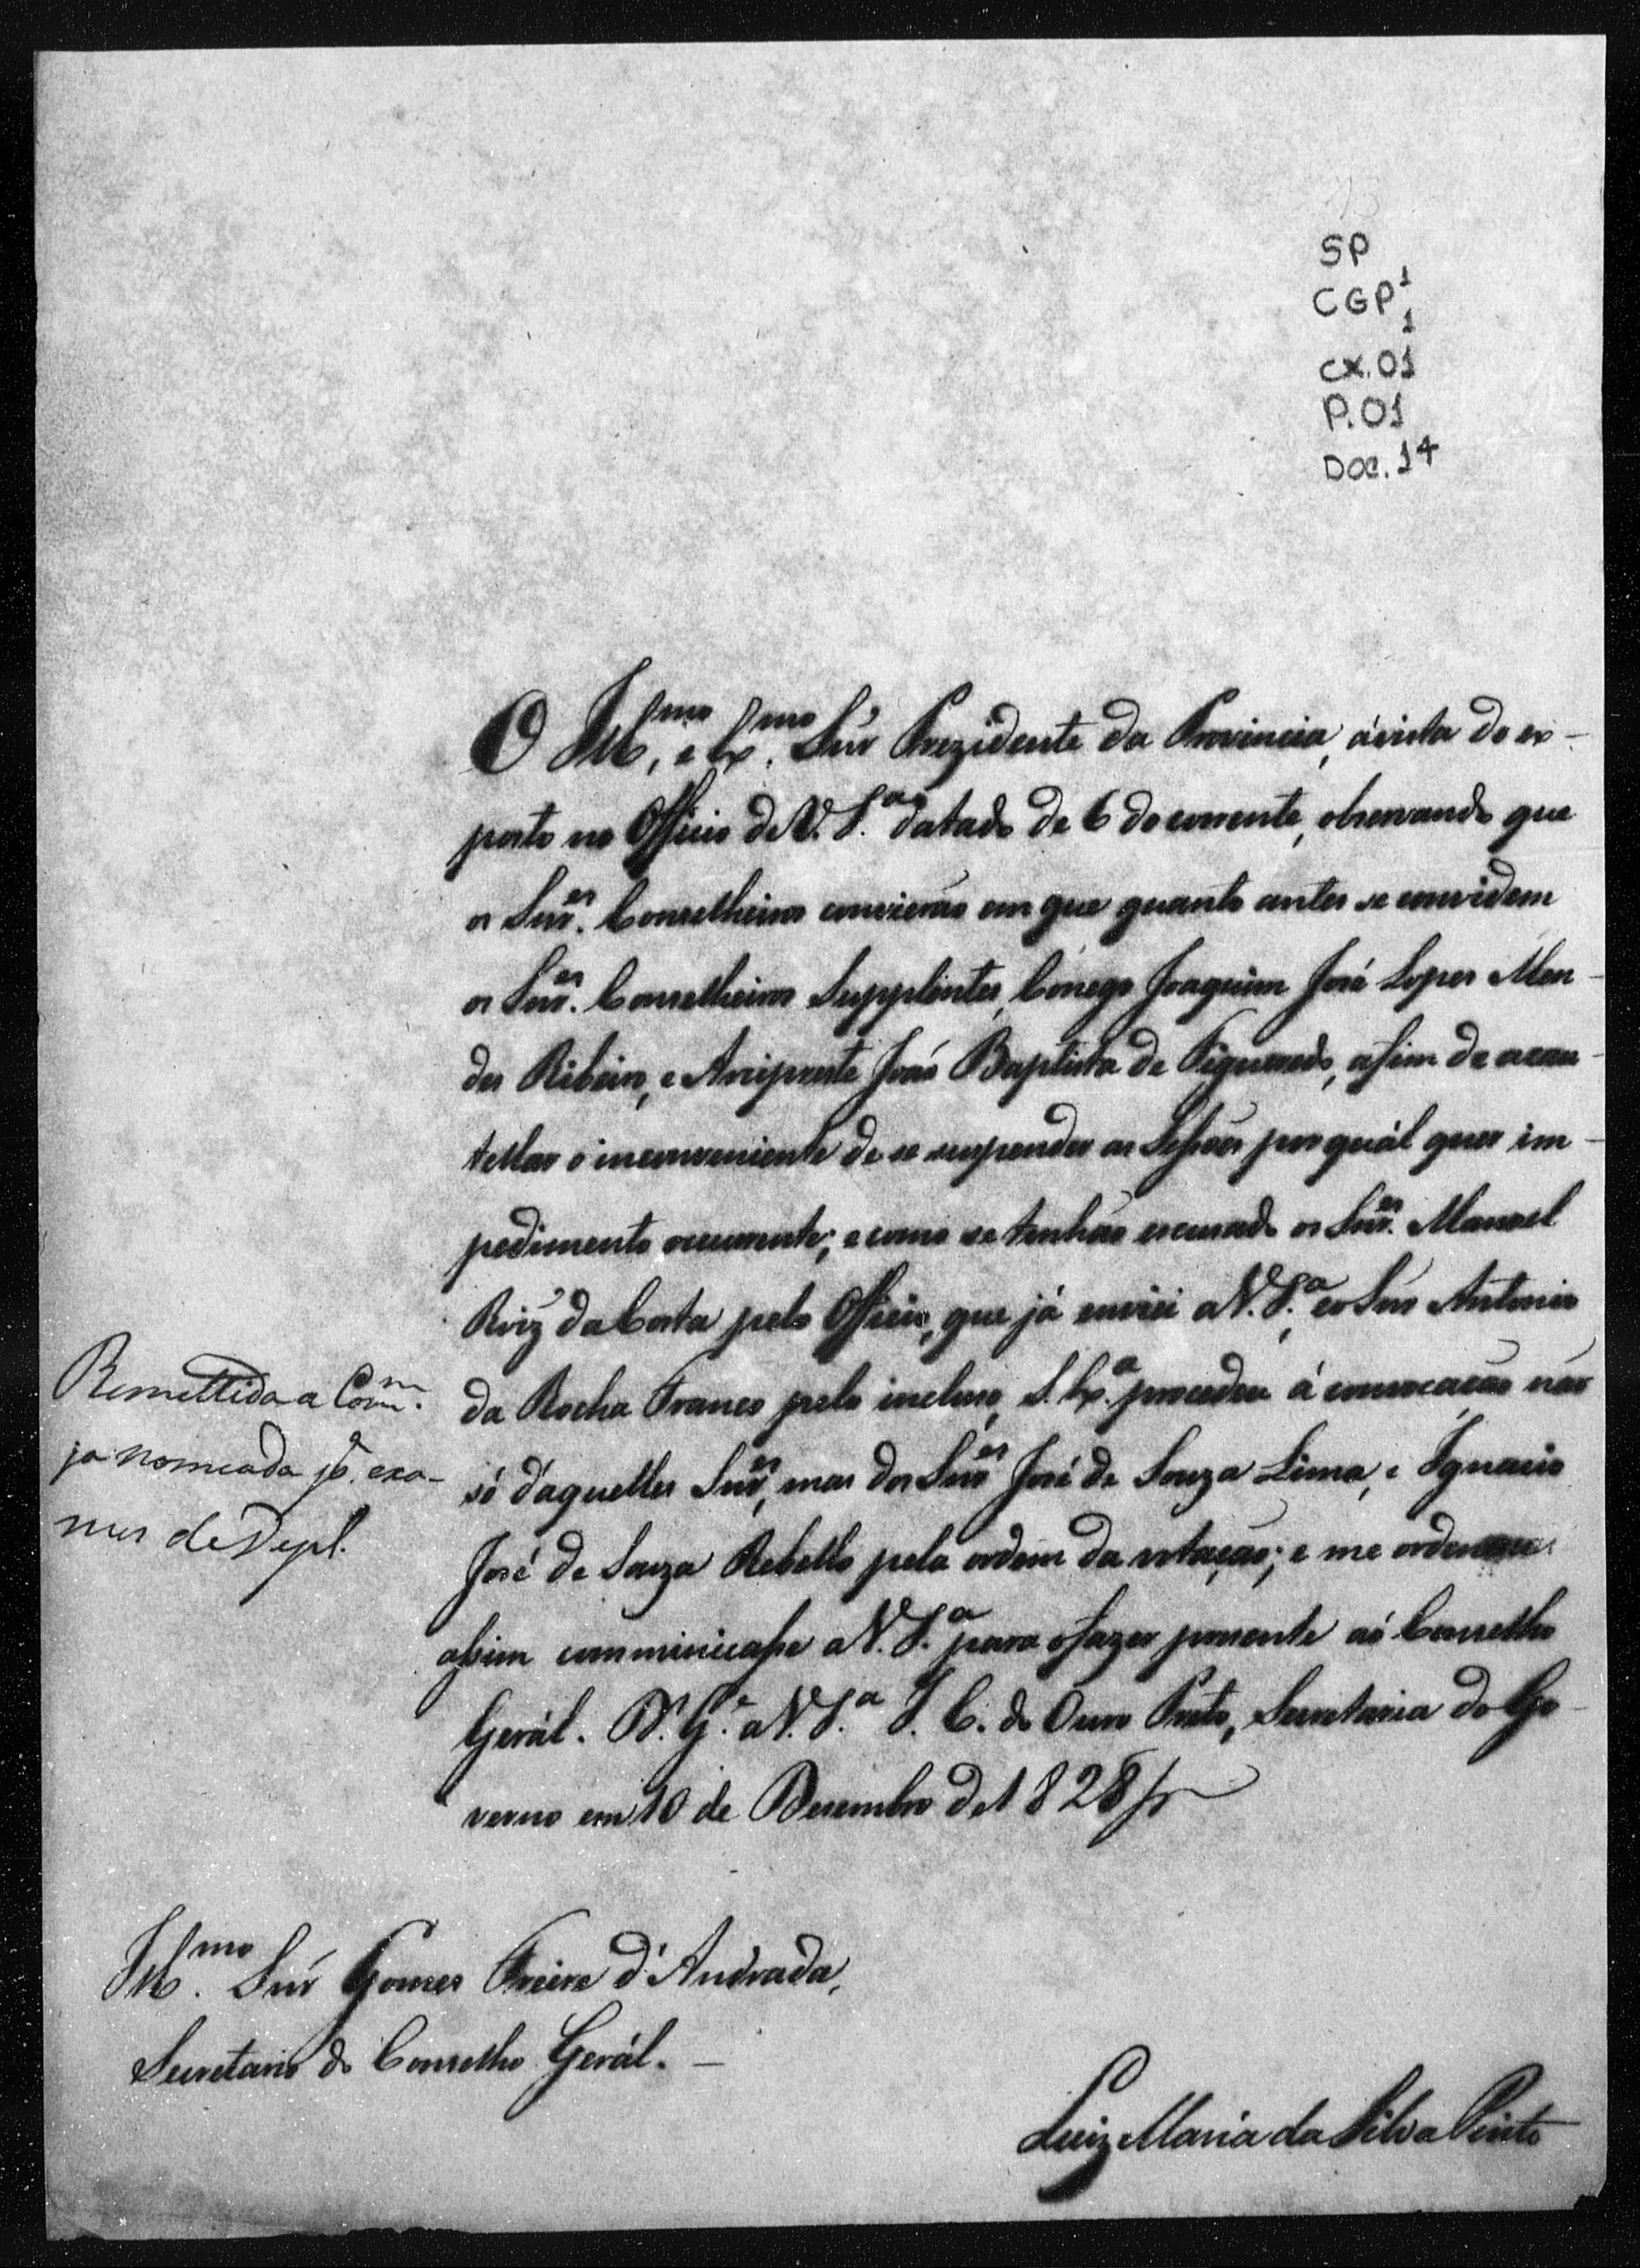 SP
CGP 1
1
CX. 01
P. 01
DOC. 14
O Ill.mo, e Ex.mo Snr̃ Prezidente da Provincia, á vista do ex-
posto no Officio de V. S.ª datado de 6 do corrente, observando que
os Snr̃.es Conselheiros convierão em que quanto antes se convidem
os Snr̃.es Conselheiros Supplentes, Cónego Joaquim José Lopes Men-
des Ribeiro, e Arcipreste João Baptista de Figueredo, afim de acau-
tellar o inconveniente de se suspender as Sessões por quál quer im-
pedimento occurrente; e como se tenhão excusado os Snr̃.es Manoel
Roiz̃ da Costa pelo Officio, que já enviei a V. S.ª, e o Snr̃ Antonio
da Rocha Franco pelo incluso, S. Ex.ª procedeu á convocação não
só d'aquelles Snr̃.es, mas dos Snr̃.es José de Souza Lima, e Ignacio
José de Souza Rebello pela ordem da votação; e me ordenou
assim comminicasse a V. S.ª para o fazer presente aó Conselho
Gerál. D.s G.e a V. S.ª I. C. do Ouro Preto, Secretaria do Go-
verno em 10 de Dezembro de 1828
Remettida a Com.m
ja nomeada p.ª exa-
mes de Dipl.
Ill.mo Snr̃ Gomes Freire d'Andrada,
Secretario do Conselho Gerál. -
Luiz Maria da Silva Pinto